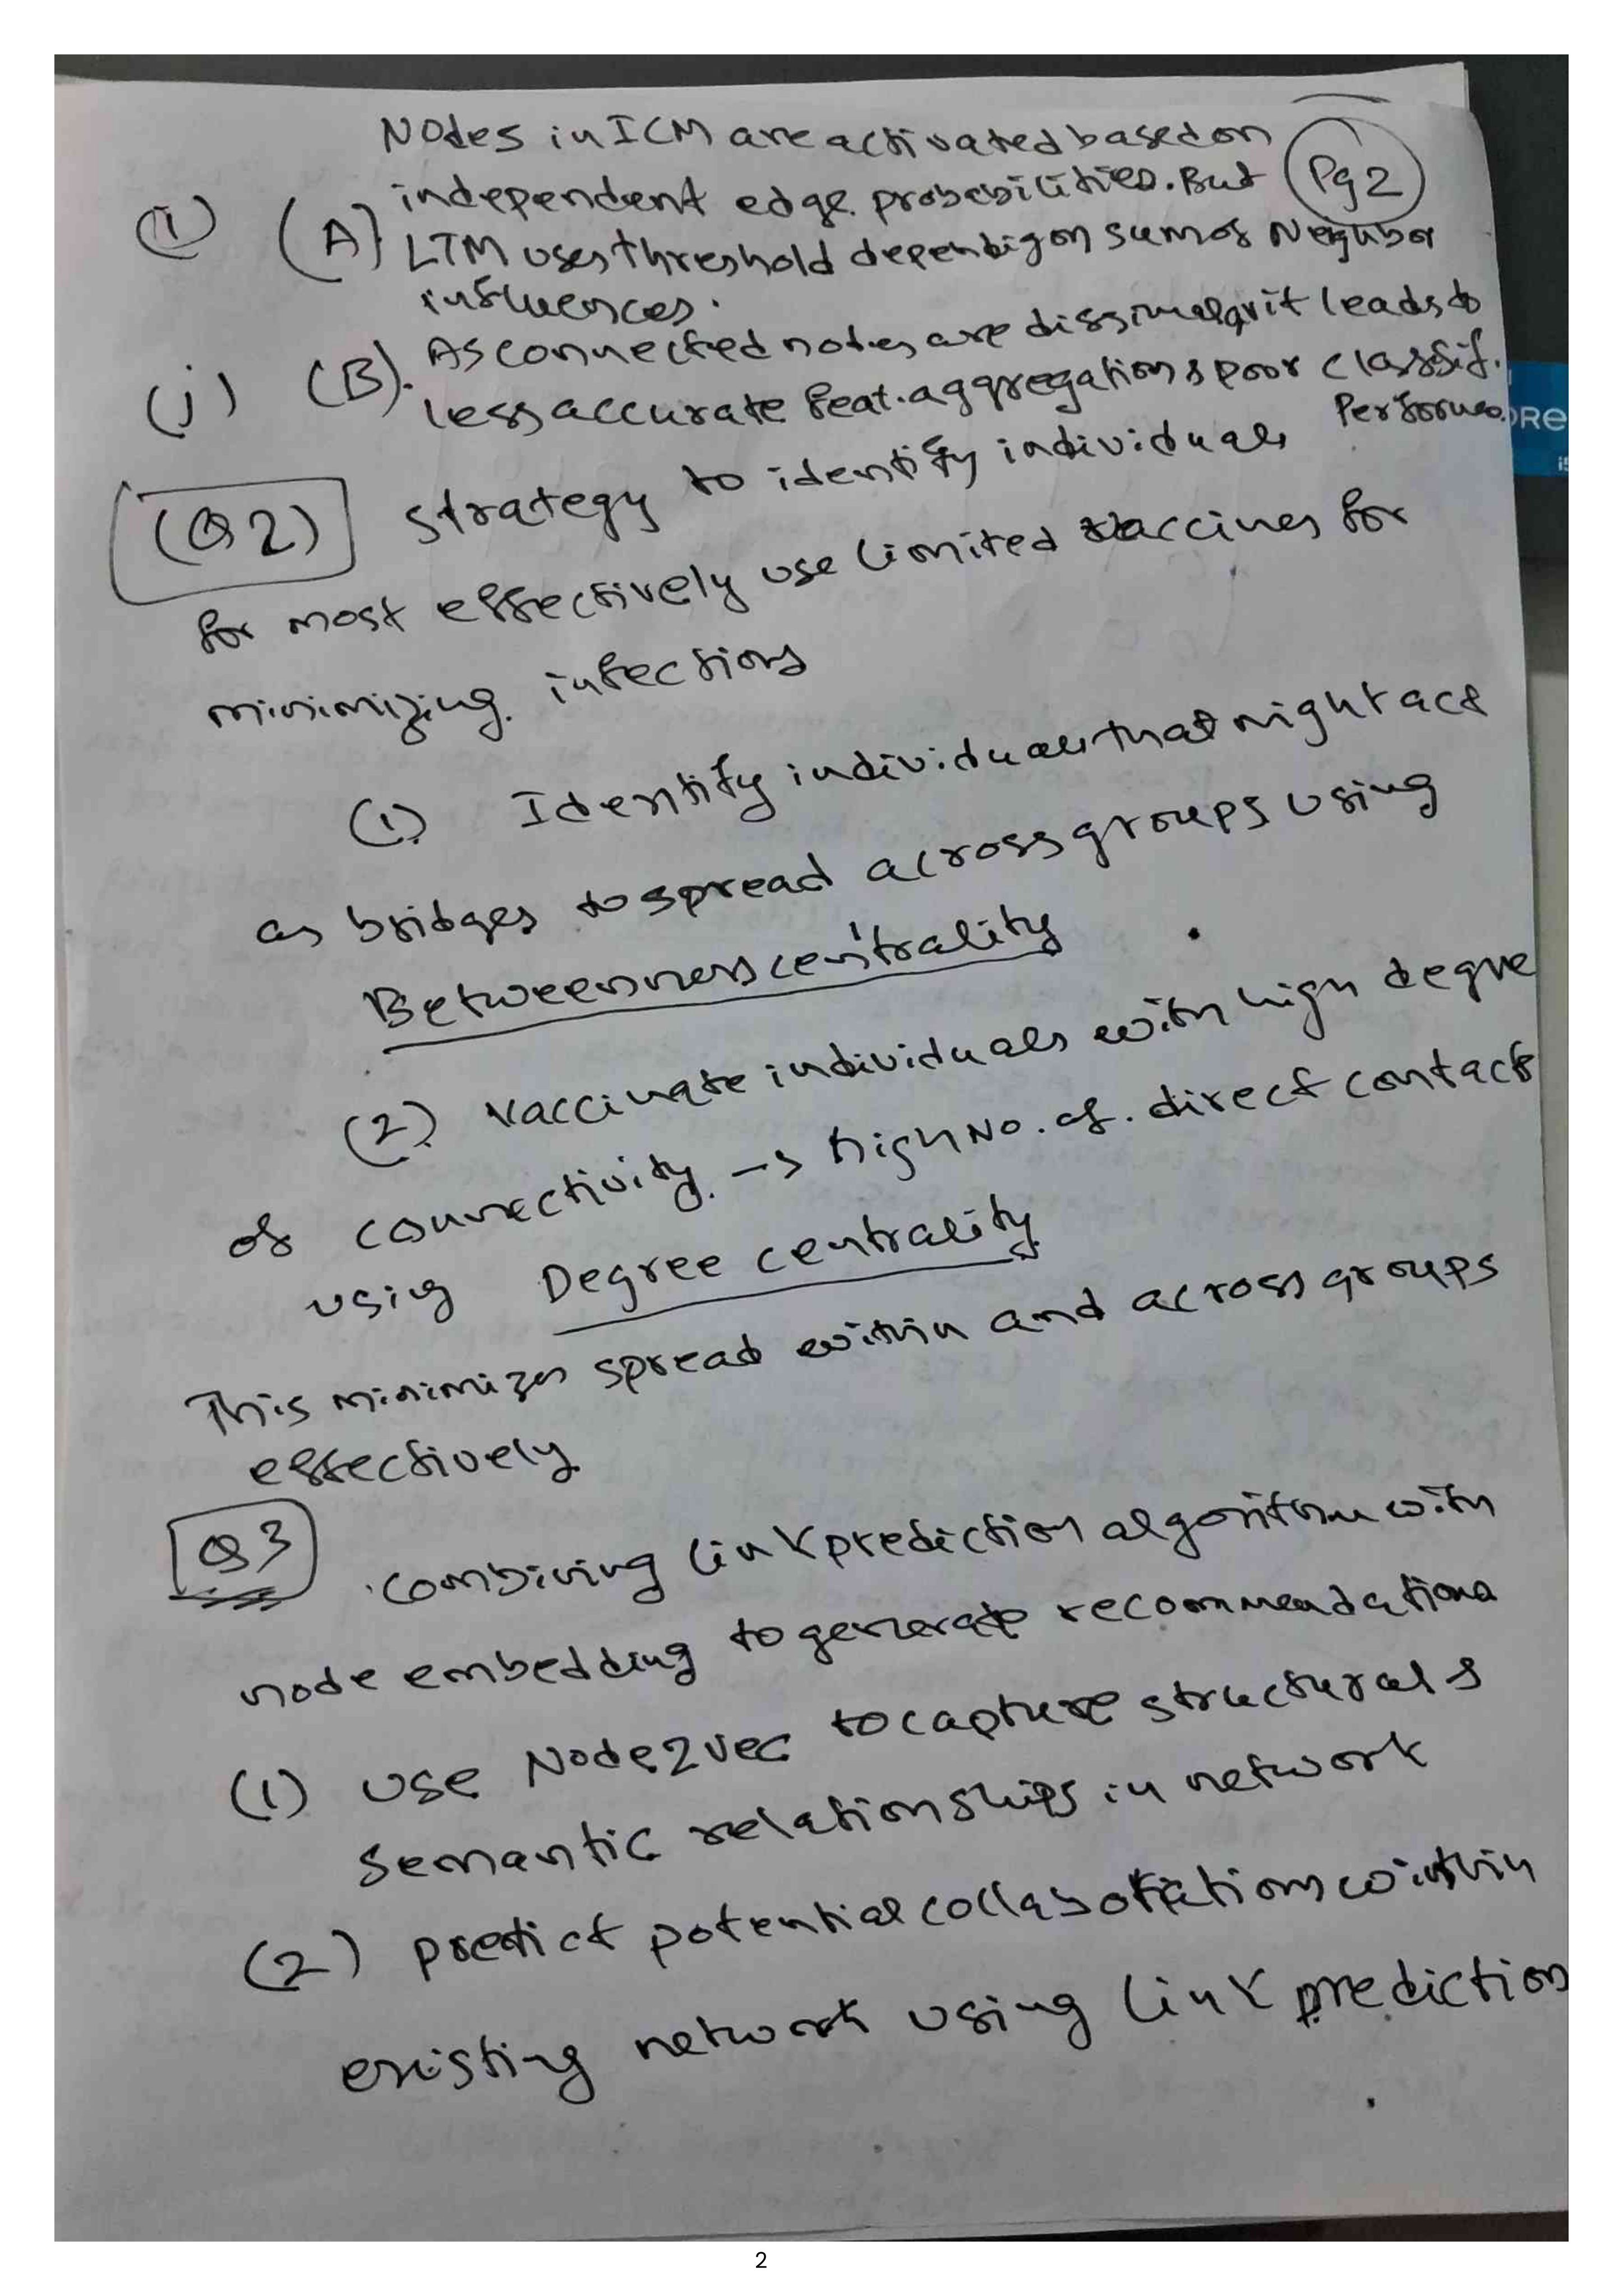 Nodes in ICM are activated based on
independent edge probabilities. But
Pg 2
(i) (A). LTM uses threshold depending on sum of Neighbor
influences.
(j) (B). As connected nodes are dissimilar it leads to
less accurate feat. aggregation & poor classif.
Performa.
(Q2) Strategy to identify individuals
for most effectively use limited vaccines for
minimizing infections
(1) Identify individuals that might act
as bridges to spread across groups using
Betweenness centrality
(2) Vaccinate individuals with high degree
of connectivity. -> high No. of. direct contacts
using Degree centrality
This minimizes spread within and across groups
effectively
Q3 combining link prediction algorithm with
node embedding to generate recommendations
(1) Use Node2vec to capture structural &
semantic relationships in network
(2) predict potential collaborations within
existing network using link prediction
2